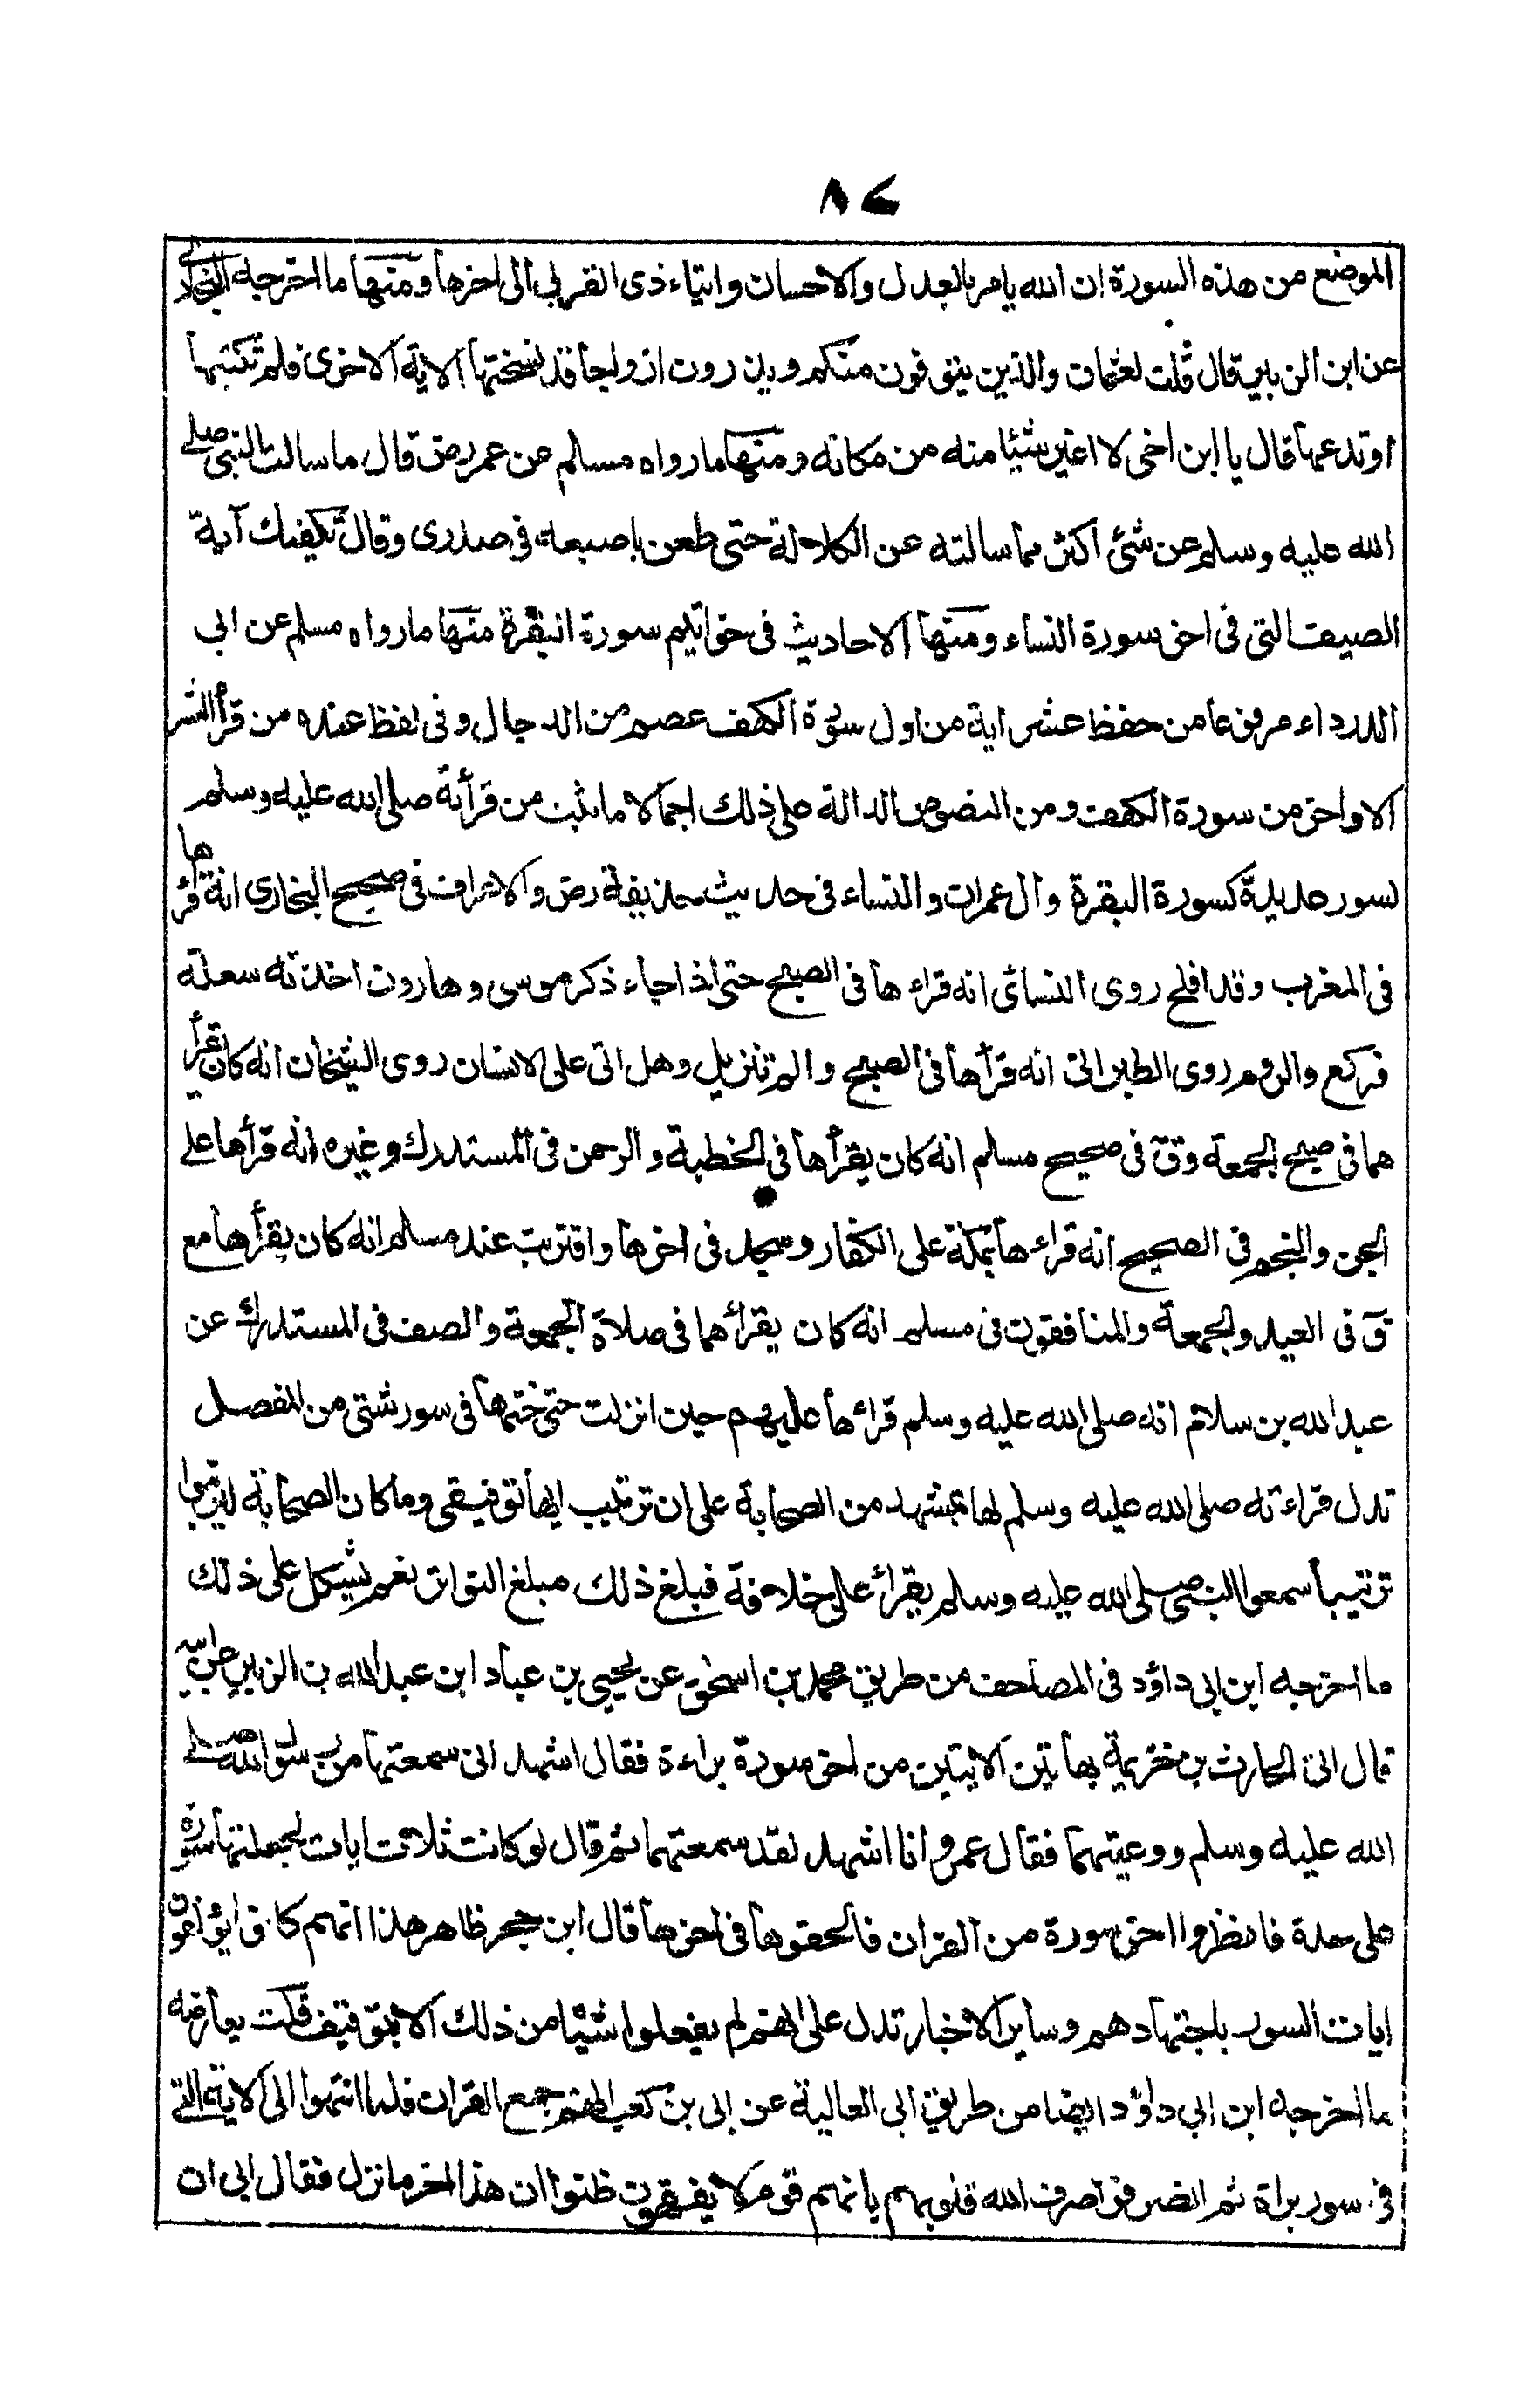 ٨٧
الموضع من هذه السورة ان الله يامر بالعدل والاحسان وايتاء ذى القربى الى اخرها ومنها ما اخرجه البخارى
عن ابن الزبير قال قلت لعثمان والذين يتوفون منكم ويذرون ازواجا قد نسختها الاية الاخرى فلم تكتبها
او تدعها قال يا ابن اخى لا اغير شيئا منه من مكانه ومنها ما رواه مسلم عن عمر رض قال ما سالت النبى صلى
الله عليه وسلم عن شئ اكثر مما سالته عن الكلالة حتى طعن باصبعه فى صدرى وقال تكفيك آية
الصيف التى فى اخر سورة النساء ومنها الاحاديث فى خواتيم سورة البقرة منها ما رواه مسلم عن ابى
الدرداء مرفوعا من حفظ عشر اية من اول سورة الكهف عصم من الدجال وفى لفظ عنده من قرأ العشر
الاواخر من سورة الكهف ومن النصوص الدالة على ذلك اجمالا ما ثبت من قرأته صلى الله عليه وسلم
لسور عديدة كسورة البقرة وال عمران والنساء فى حديث حذيفة رض والاعراف فى صحيح البخارى انه قرأها
فى المغرب وقد افلح روى النسائى انه قراءها فى الصبح حتى اذا جاء ذكر موسى وهارون اخذته سعلة
فركع والروم روى الطبرانى انه قرأها فى الصبح والم تنزيل وهل اتى على الانسان روى الشيخان انه كان يقرأ
هما فى صبح الجمعة وق فى صحيح مسلم انه كان يقرأها فى الخطبة والرحمن فى المستدرك وغيره انه قرأها على
الجن والنجم فى الصحيح انه قراءها بمكة على الكفار وسجد فى اخرها واقتربت عند مسلم انه كان يقرأها مع
ق فى العيد والجمعة والمنافقون فى مسلم انه كان يقرأهما فى صلاة الجمعة والصف فى المستدرك عن
عبد الله بن سلام انه صلى الله عليه وسلم قراءها عليهم حين انزلت حتى ختمها فى سور شتى من المفصل
تدل قراءته صلى الله عليه وسلم لها بمشهد من الصحابة على ان ترتيب ايها توقيفى وما كان الصحابة ليرتبوا
ترتيبا سمعوا النبى صلى الله عليه وسلم يقرأ على خلافة فبلغ ذلك مبلغ التواتر نعم يشكل على ذلك
ما اخرجه ابن ابى داؤد فى المصاحف من طريق محمد بن اسحق عن يحيى بن عباد ابن عبد الله بن الزبير عن ابيه
قال اتى الحارث بن خزيمة بهاتين الايتين من اخر سورة براءة فقال اشهد انى سمعتهما من رسول الله صلى
الله عليه وسلم ووعيتهما فقال عمر وانا اشهد لقد سمعتهما ثم قال لو كانت ثلاث ايات لجعلتها سورة
على حدة فانظروا اخر سورة من القران فالحقوها فى اخرها قال ابن حجر ظاهر هذا انهم كانوا يؤلفون
ايات السور باجتهادهم وساير الاخبار تدل على انهم لم يفعلوا شيئا من ذلك الا بتوقيف قلت يعارضه
ما اخرجه ابن ابى داؤد ايضا من طريق ابى العالية عن ابى بن كعب انهم جمع القران فلما انتهوا الى الاية التى
فى سور براة ثم انصرفوا صرف الله قلوبهم بانهم قوم لا يفقهون ظنوا ان هذا اخر ما نزل فقال ابى ان